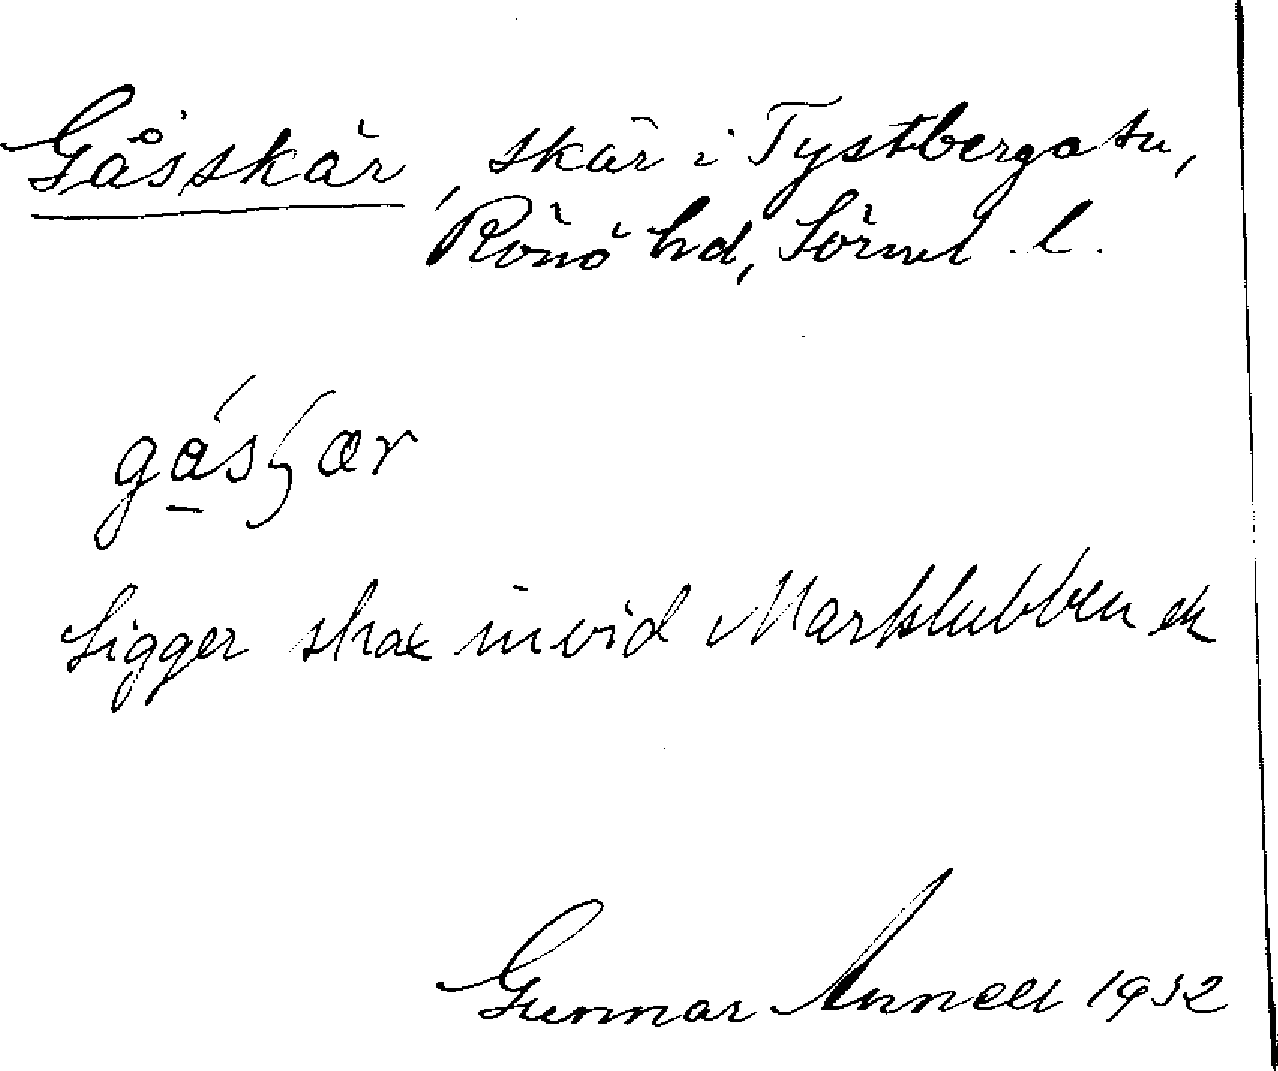 Gåsskär, skär i Tystberga sn,
Rönö hd, Sörml. l.
Ligger strax invid Marklubben
Gunnar Annell 1932